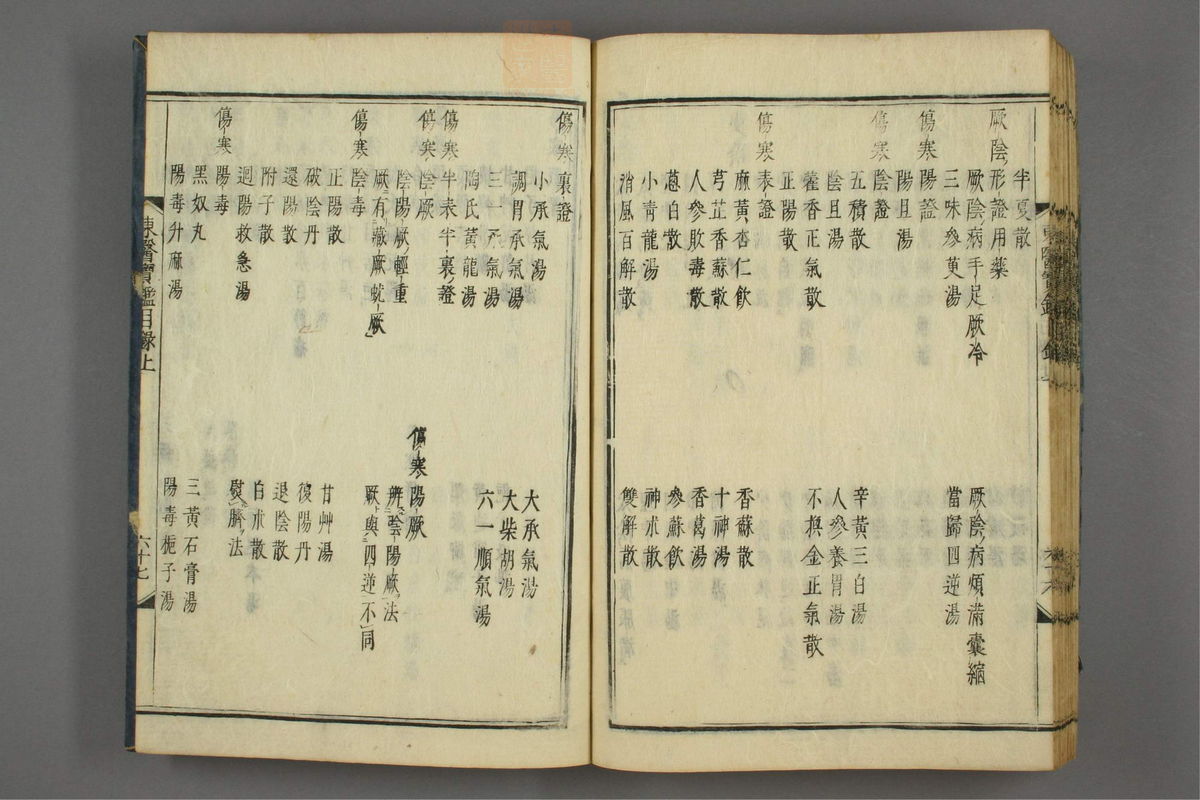 半夏散
厥陰形證用藥
厥陰病手足厥冷 厥陰病煩滿囊縮
三味參萸湯 當歸四逆湯
傷寒陽證
陽旦湯
傷寒陰證
五積散 辛黃三白湯
陰旦湯 人參養胃湯
藿香正氣散 不換金正氣散
正陽散
傷寒表證
麻黃杏仁飲 香蘇散
芎芷香蘇散 十神湯
人參敗毒散 香葛湯
蔥白散 參蘇飲
小青龍湯 神朮散
消風百解散 雙解散
傷寒裏證
小承氣湯 大承氣湯
調胃承氣湯 大柴胡湯
三一承氣湯 六一順氣湯
陶氏黃龍湯
傷寒半表半裏證
傷寒陰厥 傷寒陽厥
陰陽厥輕重 辨陰陽厥法
厥有藏厥蚘厥 厥與四逆不同
傷寒陰毒
正陽散 甘艸湯
破陰丹 復陽丹
還陽散 退陰散
附子散 白朮散
迴陽救急湯 熨臍法
傷寒陽毒
黑奴丸 三黃石膏湯
陽毒升麻湯 陽毒梔子湯
東醫寶鑑目錄上 六十七